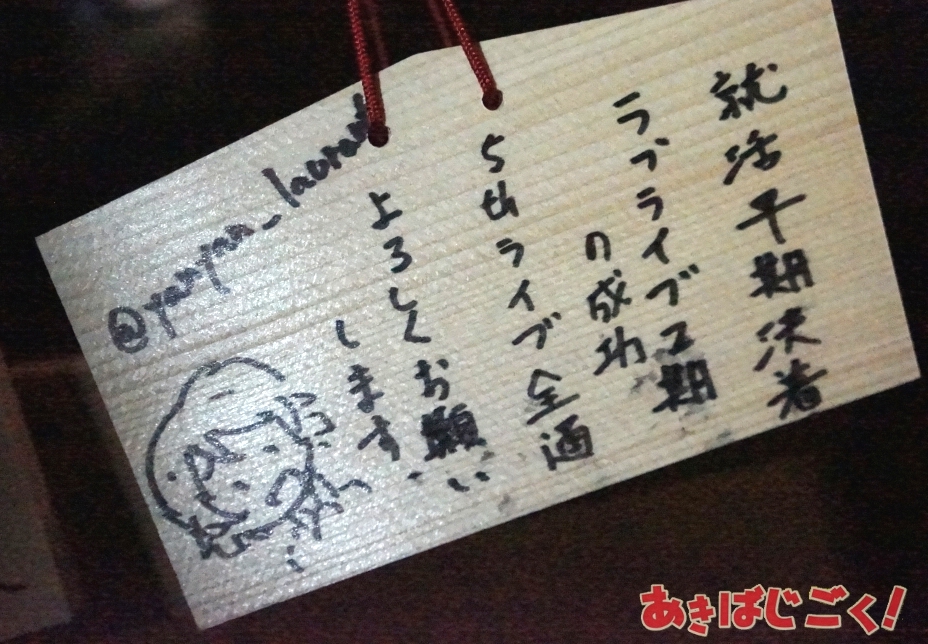 就活早期決着
ラブライブ2期
の成功
5thライブ全通
よろしくお願い
します
あきばじごく!